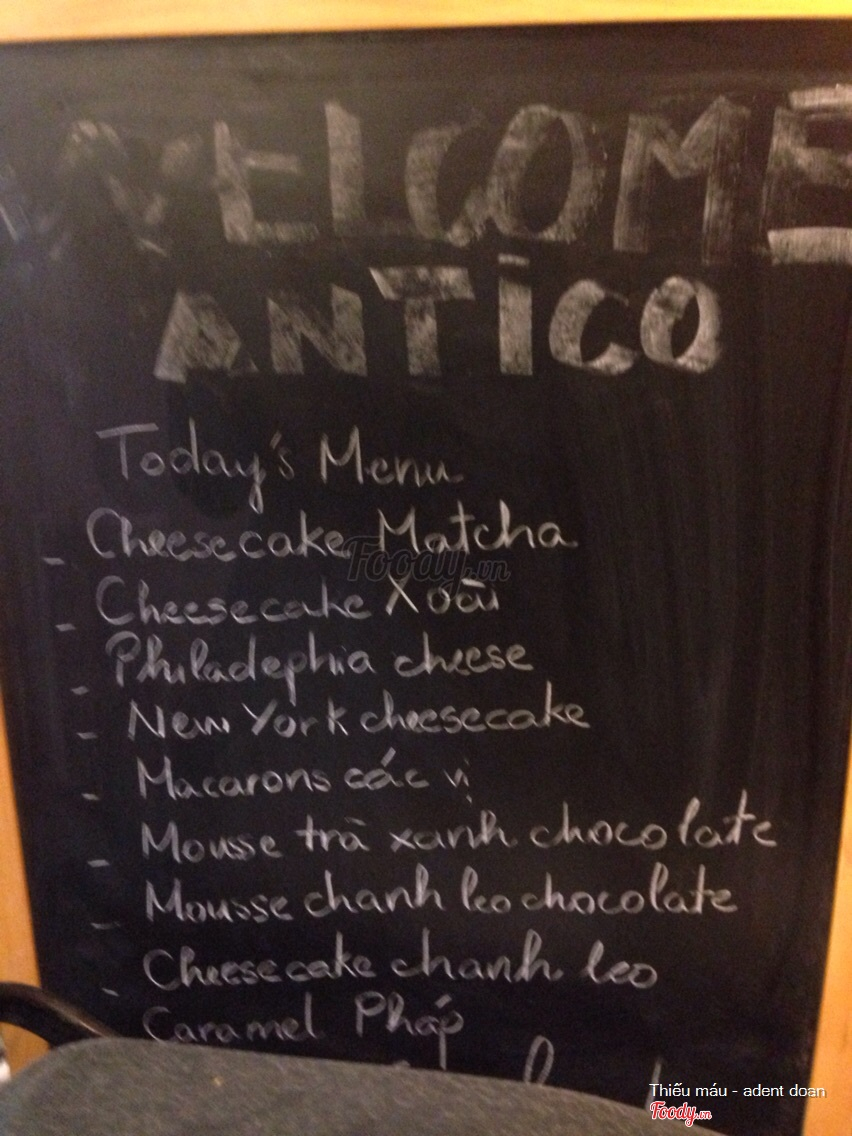 WELCOME
ANTiCO
Today's Menu
- Cheesecake Matcha
Foody.vn
- Cheesecake Xoài
- Philadephia cheese
- New York cheesecake
- Macarons các vị
- Mousse trà xanh chocolate
- Mousse chanh leo chocolate
- Cheesecake chanh leo
Caramel Pháp
Thiếu máu - adent doan
Foody.vn